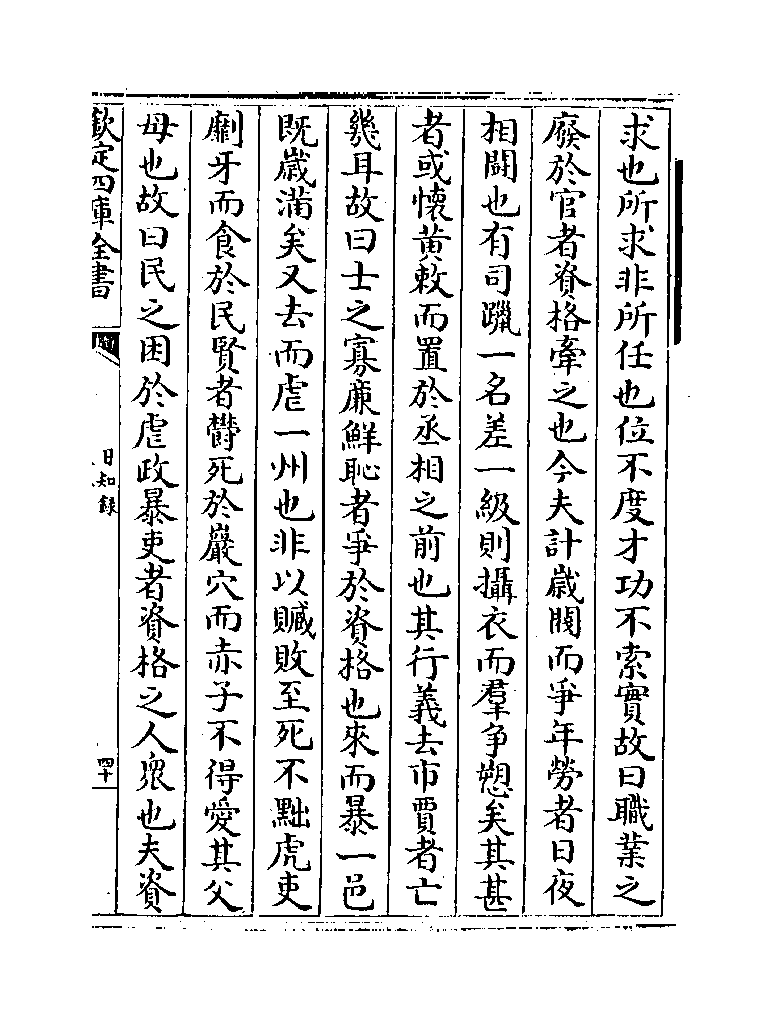 求也所求非所任也位不度才功不索實故曰職業之
廢於官者資格牽之也今夫計歲閥而爭年勞者日夜
相鬬也有司躐一名差一級則攝衣而羣争愬矣其甚
者或懷黄敕而置於丞相之前也其行義去市賈者亡
幾耳故曰士之寡亷鮮恥者爭於資格也來而暴一邑
既歲滿矣又去而虐一州也非以贓敗至死不黜虎吏
劘牙而食於民賢者鬱死於巖穴而赤子不得愛其父
母也故曰民之困於虐政暴吏者資格之人衆也夫資
欽定四庫全書
日知錄
四十